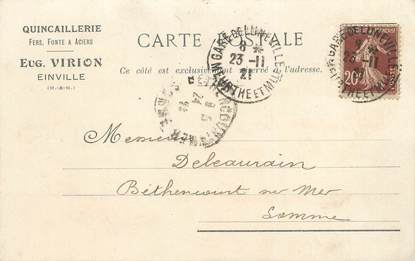 QUINCAILLERIE
FERS, FONTE & ACIERS
EUG. VIRION
EINVILLE
(M.-&-M.)
CARTE POSTALE
Ce côté est exclusivement réservé à l'adresse.
GARE DE LUNEVILLE
23-11
21
MEURTHE ET MLLE
20c
Messieurs
Delcaurain
Béthencourt sur Mer
Somme